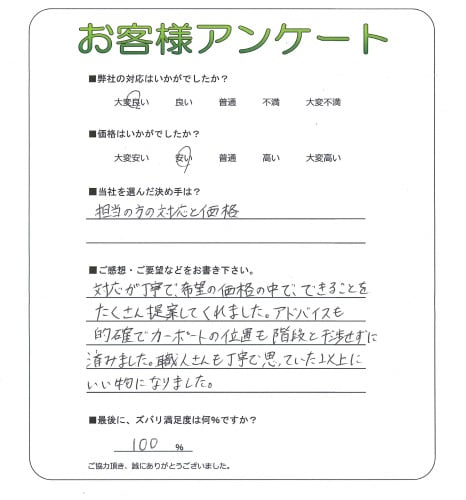 お客様アンケート
■弊社の対応はいかがでしたか？
大変良い 良い 普通 不満 大変不満
■価格はいかがでしたか？
大変安い 安い 普通 高い 大変高い
■当社を選んだ決め手は？
担当の方の対応と価格
■ご感想・ご要望などをお書き下さい。
対応が丁寧で、希望の価格の中で、できることを
たくさん提案してくれました。アドバイスも
的確でカーポートの位置も階段と干渉せずに
済みました。職人さんも丁寧で思っていた以上に
いい物になりました。
■最後に、ズバリ満足度は何％ですか？
100 ％
ご協力頂き、誠にありがとうございました。